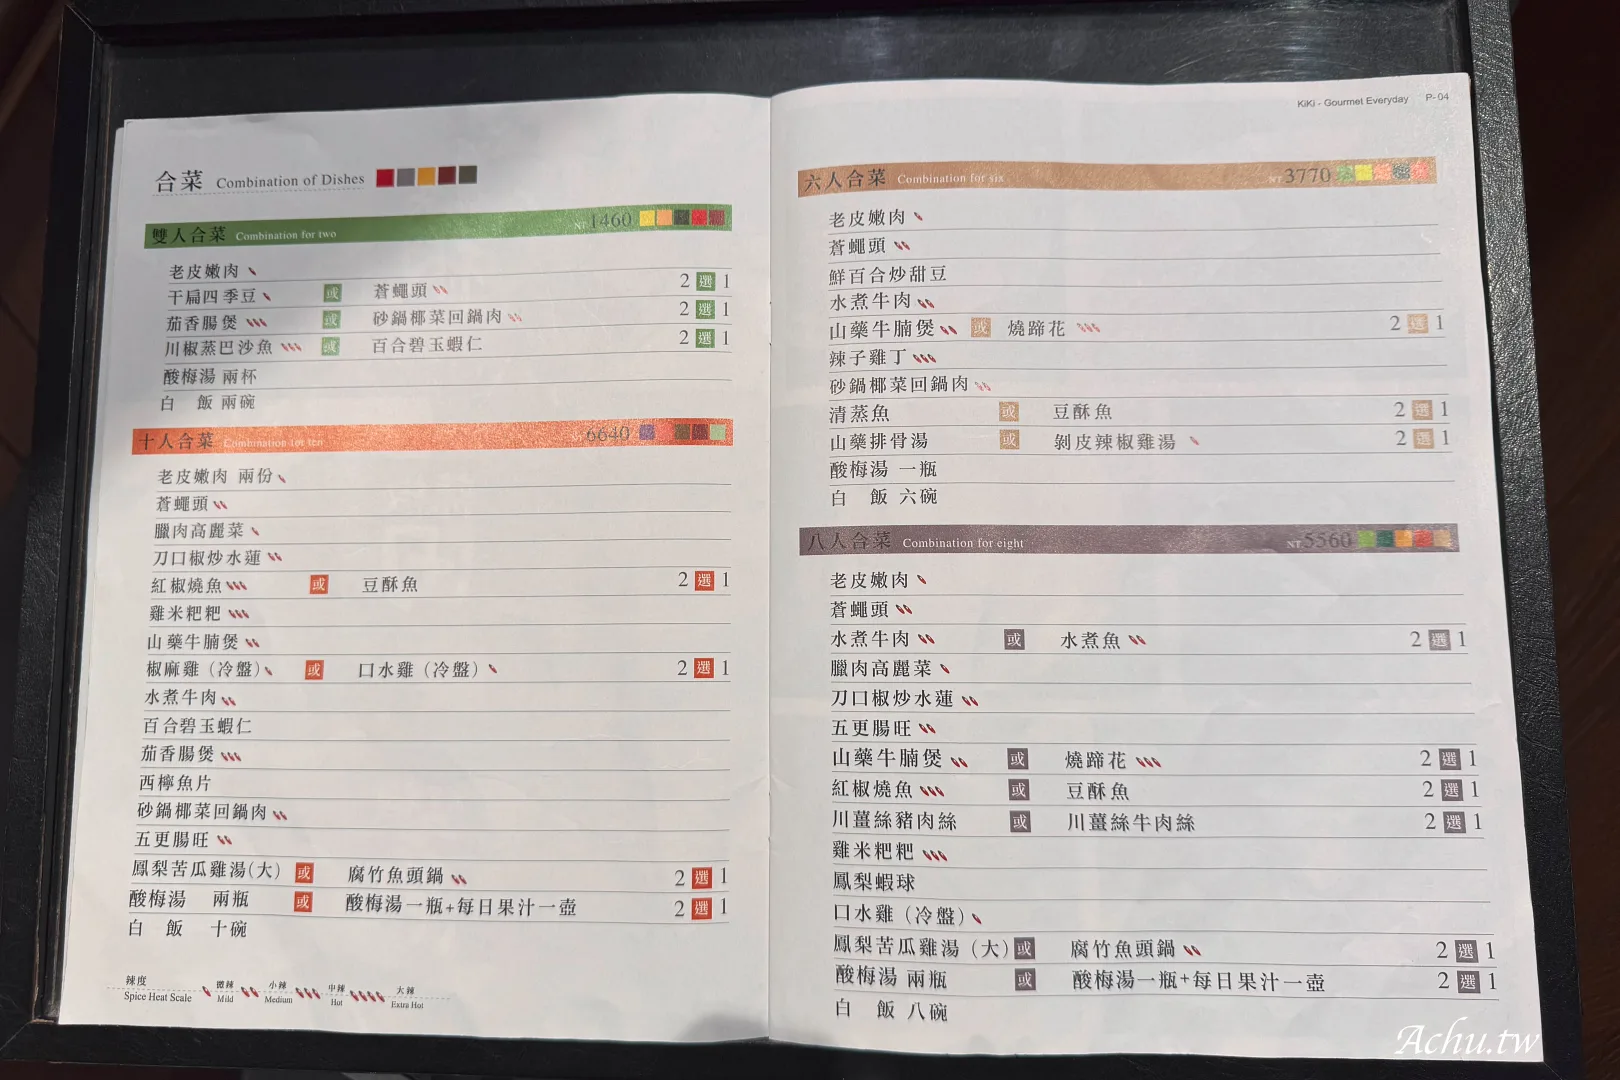 合菜 Combination of Dishes
雙人合菜 Combination for two NT 1460
老皮嫩肉
干扁四季豆 或 蒼蠅頭 2 選 1
茄香腸煲 或 砂鍋椰菜回鍋肉 2 選 1
川椒蒸巴沙魚 或 百合碧玉蝦仁 2 選 1
酸梅湯 兩杯
白 飯 兩碗
十人合菜 Combination for ten 6640
老皮嫩肉 兩份
蒼蠅頭
臘肉高麗菜
刀口椒炒水蓮
紅椒燒魚 或 豆酥魚 2 選 1
雞米粑粑
山藥牛腩煲
椒麻雞（冷盤） 或 口水雞（冷盤） 2 選 1
水煮牛肉
百合碧玉蝦仁
茄香腸煲
西檸魚片
砂鍋椰菜回鍋肉
五更腸旺
鳳梨苦瓜雞湯(大) 或 腐竹魚頭鍋 2 選 1
酸梅湯 兩瓶 或 酸梅湯一瓶+每日果汁一壺 2 選 1
白 飯 十碗
辣度 微辣 小辣 中辣 大辣
Spice Heat Scale Mild Medium Hot Extra Hot
KiKi - Gourmet Everyday P-04
六人合菜 Combination for six NT 3770
老皮嫩肉
蒼蠅頭
鮮百合炒甜豆
水煮牛肉
山藥牛腩煲 或 燒蹄花 2 選 1
辣子雞丁
砂鍋椰菜回鍋肉
清蒸魚 或 豆酥魚 2 選 1
山藥排骨湯 或 剝皮辣椒雞湯 2 選 1
酸梅湯 一瓶
白 飯 六碗
八人合菜 Combination for eight NT 5560
老皮嫩肉
蒼蠅頭
水煮牛肉 或 水煮魚 2 選 1
臘肉高麗菜
刀口椒炒水蓮
五更腸旺
山藥牛腩煲 或 燒蹄花 2 選 1
紅椒燒魚 或 豆酥魚 2 選 1
川薑絲豬肉絲 或 川薑絲牛肉絲 2 選 1
雞米粑粑
鳳梨蝦球
口水雞（冷盤）
鳳梨苦瓜雞湯（大） 或 腐竹魚頭鍋 2 選 1
酸梅湯 兩瓶 或 酸梅湯一瓶+每日果汁一壺 2 選 1
白 飯 八碗
Achu.tw